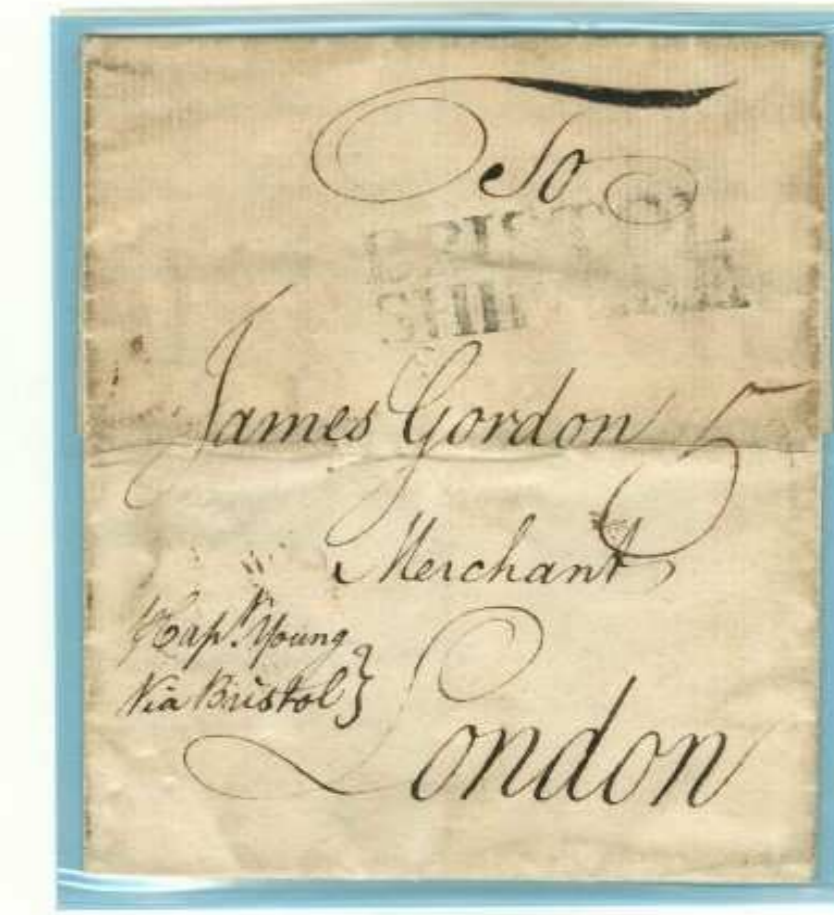 To
BRISTOL
SHIP
James Gordon 5
Merchant
Capt. Young
Via Bristol
London